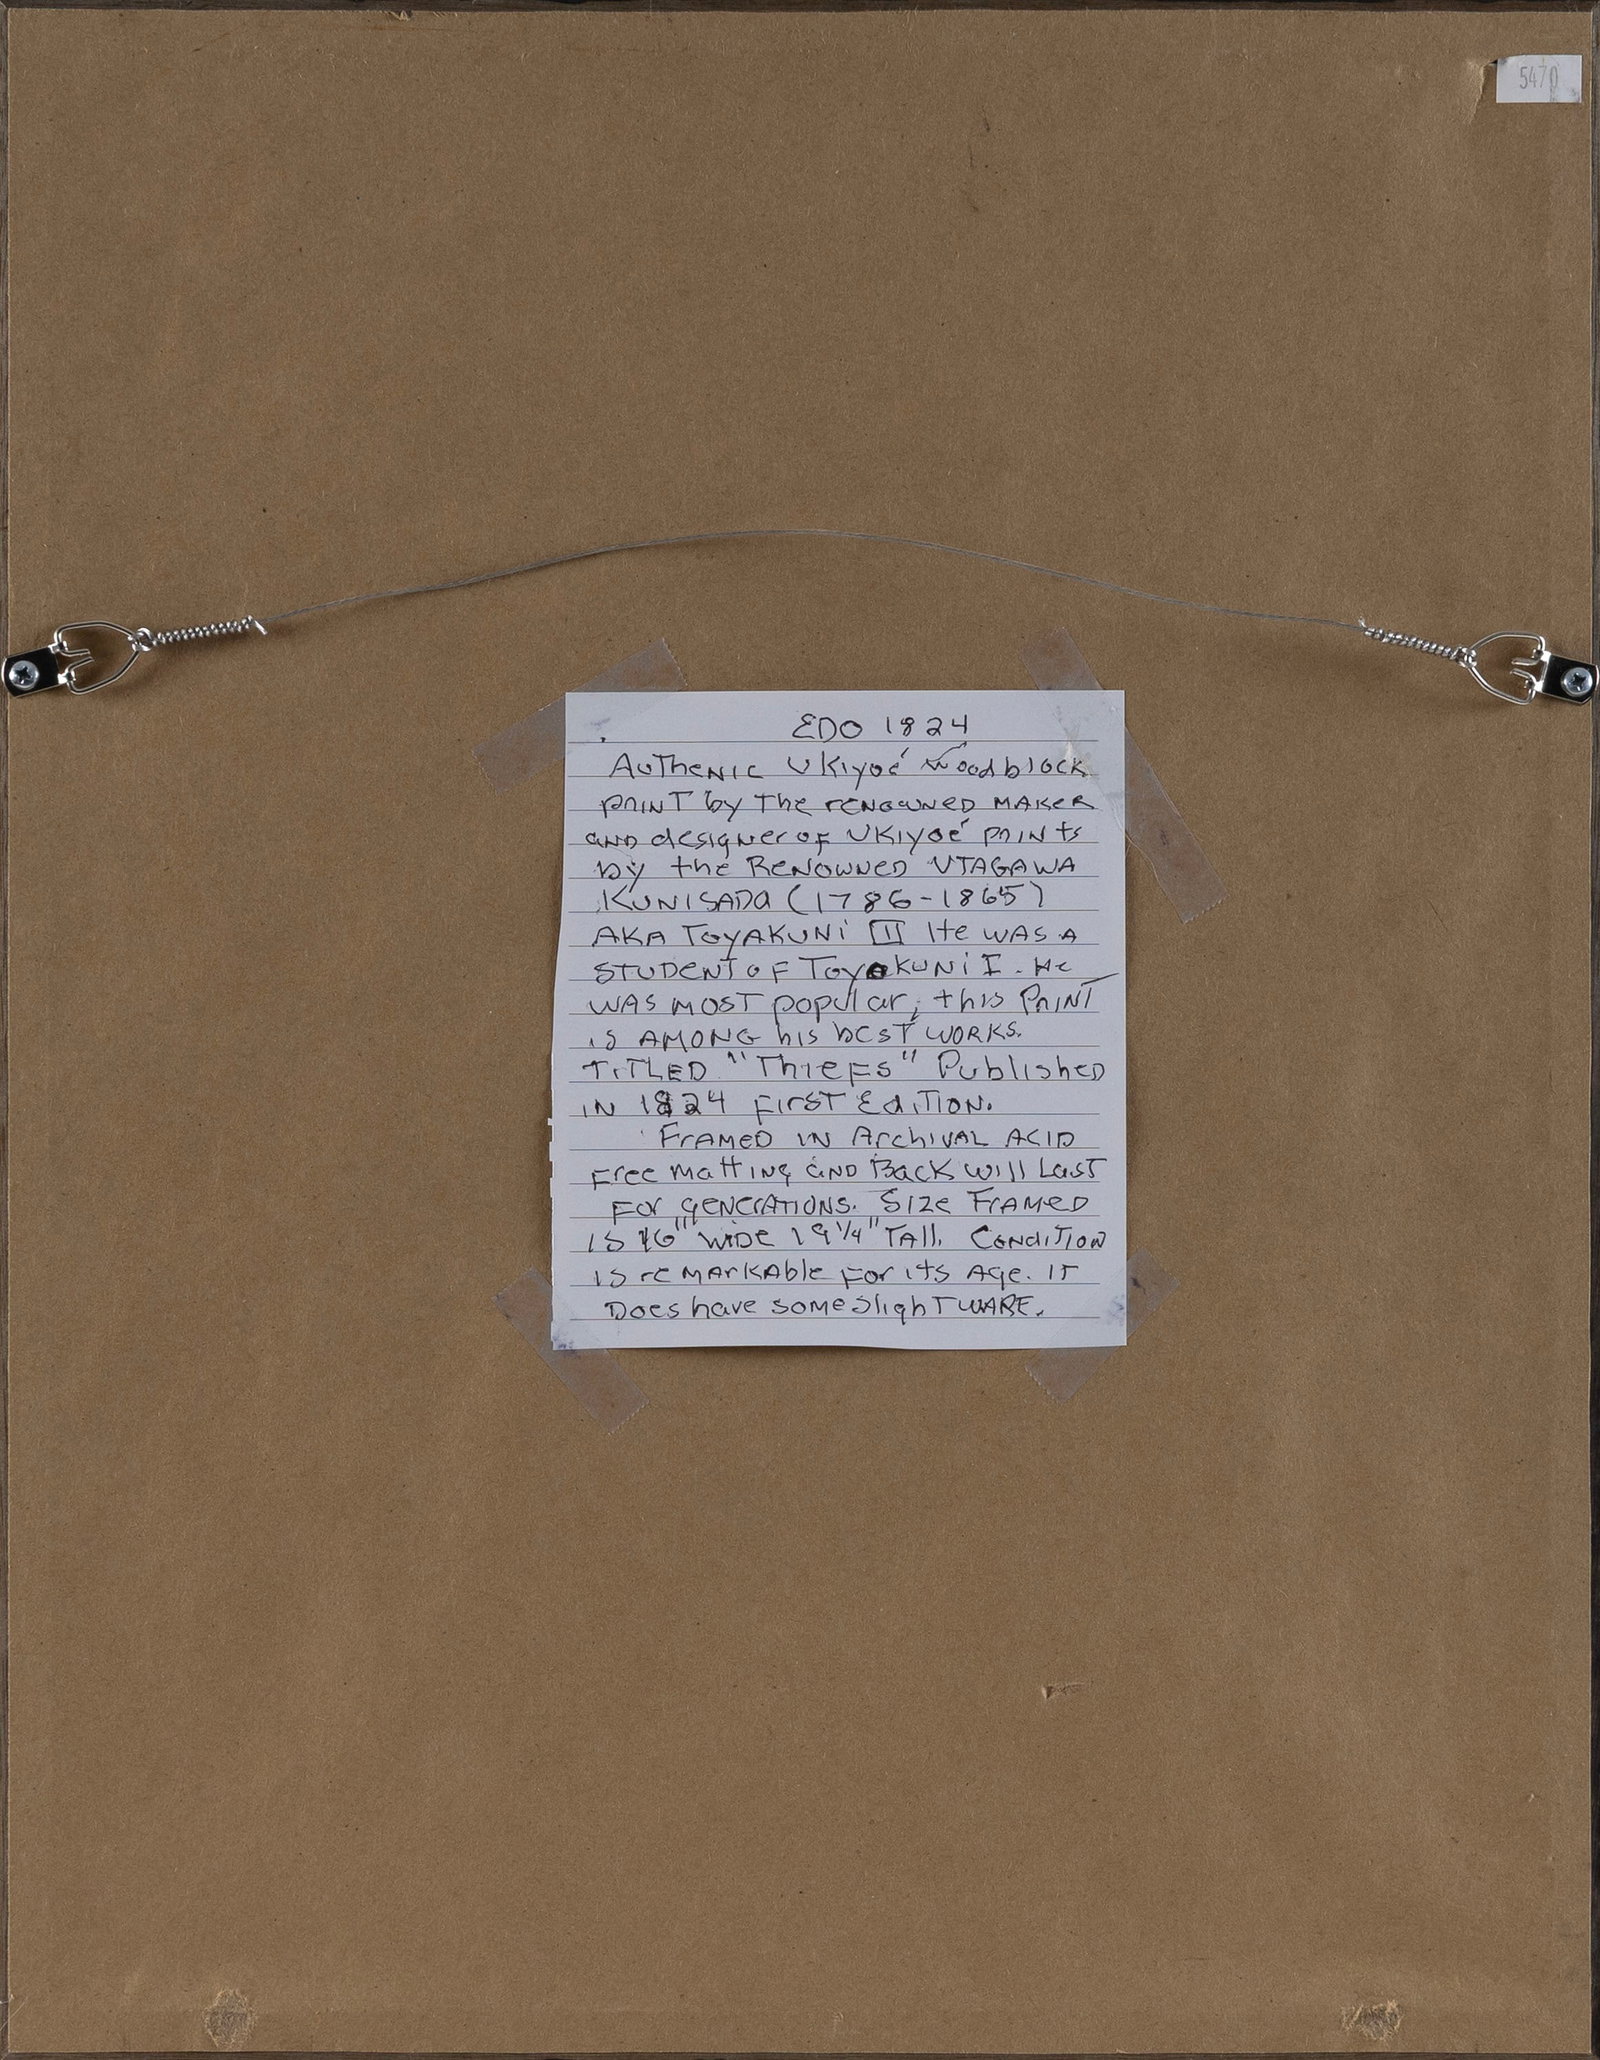 5470
EDO 1824
AuThenic Ukiyoé Woodblock
print by The renowned maker
and designer of Ukiyoé prints
by the Renowned UTAGAWA
KUNISADA (1786-1865)
AKA ToyAKUNi III He was a
STUDENT OF ToyoKUNi I. He
was most popular, this Print
is among his best works.
TITLED "Thiefs" Published
in 1824 First Edition.
Framed in Archival Acid
Free matting and Back will Last
For generations. Size Framed
is 16" wide 19 1/4" Tall. Condition
is remarkable for its age. It
Does have some slight WARE.